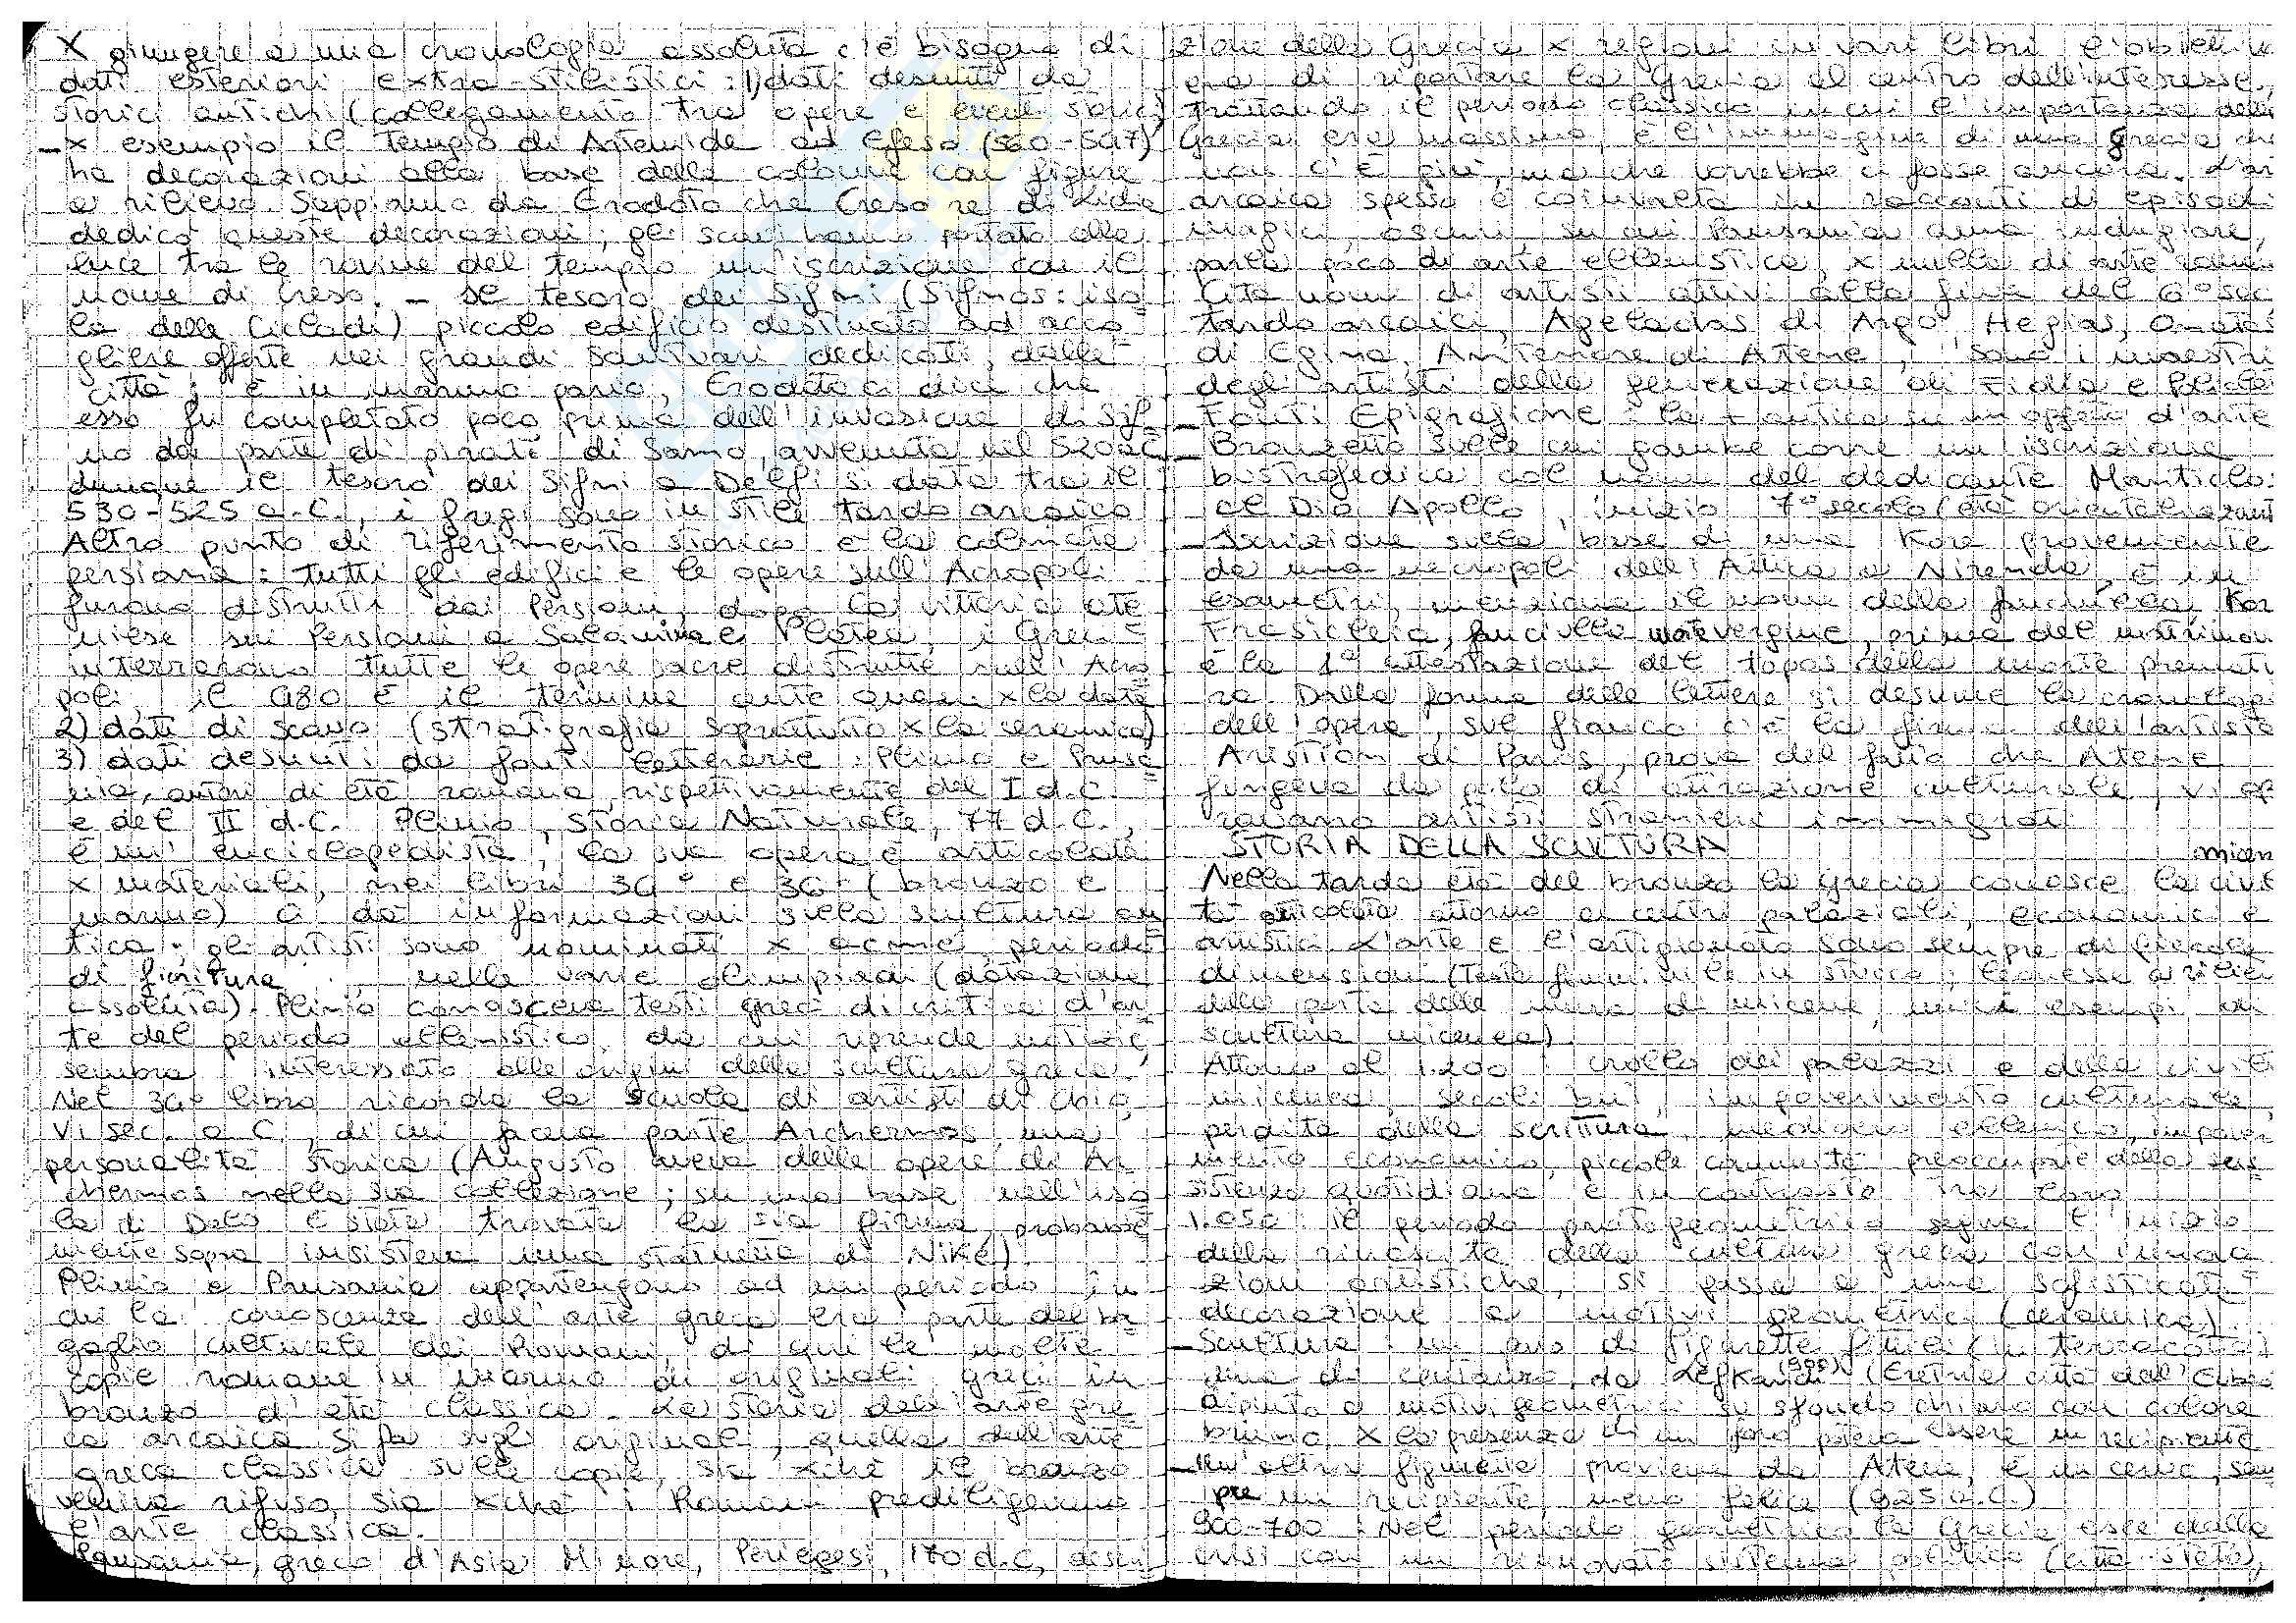 X giungere a una cronologia assoluta c'è bisogno di
dati esteriori extra-stilistici: 1) dati desunti da
storici antichi (collegamento tra opere e eventi storici)
- x esempio il tempio di Artemide ad Efeso (560-547)
ha decorazioni alla base delle colonne con figure
a rilievo. Sappiamo da Erodoto che Creso re di Lidia
dedicò queste decorazioni; gli scavi hanno portato alla
luce tra le rovine del tempio un'iscrizione con il
nome di Creso. - Il tesoro dei Sifni (Sifnos: iso
la delle Cicladi) piccolo edificio destinato ad acco
gliere offerte nei grandi santuari dedicati dalle
città; è in marmo pario, Erodoto ci dice che
esso fu completato poco prima dell'invasione di Sif
no da parte di pirati di Samo, avvenuta nel 520 a.C.
dunque il tesoro dei Sifni a Delfi si data tra il
530-525 a.C., i fregi sono in stile tardo arcaico
Altro punto di riferimento storico è la colmata
persiana: tutti gli edifici e le opere sull'Acropoli
furono distrutti dai Persiani, dopo la vittoria ate
niese sui Persiani a Salamina e Platea, i Greci
interrarono tutte le opere sacre distrutte sull'Acro
poli, il 480 è il termine ante quem x la data
2) dati di scavo (stratigrafia soprattutto x la ceramica)
3) dati desunti da fonti letterarie: Plinio e Pausa
nia, autori di età romana, rispettivamente del I d.C.
e del II d.C. Plinio, Storia Naturale, 77 d.C.,
è un'enciclopedista, la sua opera è articolata
x materiali, nei libri 34° e 36° (bronzo e
marmo) ci dà informazioni sulla scultura an
tica; gli artisti sono nominati x acmé, periodo
di fioritura, nelle varie olimpiadi (datazione
assoluta). Plinio conosceva testi greci di critica d'ar
te del periodo ellenistico, da cui riprende notizie,
sembra interessato alle origini della scultura greca.
Nel 34° libro ricorda la scuola di artisti di Chio,
VI sec. a.C., di cui faceva parte Archermos, una
personalità storica (Augusto aveva delle opere di Ar
chermos nella sua collezione; su una base nell'iso
la di Delo è stata trovata la sua firma, probabil
mente sopra insisteva una statuetta di Nike).
Plinio e Pausania appartengono ad un periodo in
cui la conoscenza dell'arte greca era parte del ba
gaglio culturale dei Romani, di qui le molte
copie romane in marmo di originali greci in
bronzo d'età classica. La storia dell'arte gre
ca arcaica si fa sugli originali, quella dell'arte
greca classica sulle copie, sia xché il bronzo
veniva rifuso, sia xché i Romani prediligevano
l'arte classica.
Pausania, greco d'Asia Minore, Periegesi, 170 d.C., descri
zione della Grecia x regioni in vari libri l'obiettivo
era di riportare la Grecia al centro dell'interesse,
trattando il periodo classico in cui l'importanza della
Grecia era massima, è l'immagine di una grecia che
non c'è più, ma che vorrebbe ci fosse ancora. L'ar
arcaica spesso è coinvolta in racconti di episodi
magici, oscuri, su cui Pausania ama indugiare,
parla poco di arte ellenistica, x nulla di arte roman
Cita nomi di artisti attivi alla fine del 6° sec
tardo arcaici, Ageladas di Argo, Hegias, Onatas
di Egina, Antenore di Atene, sono i maestri
degli artisti della generazione di Fidia e Policle
- Fonti Epigrafiche: la + antica su un oggetto d'arte
- Bronzetto sulle cui gambe corre un iscrizione
bustrofedica col nome del dedicante Manticlo:
al Dio Apollo, inizio 7° secolo (età orientalizzant
- Iscrizione sulla base di una Kore proveniente
da una necropoli dell'Attica a Nirenda, è in
esametri, menziona il nome della fanciulla, Kor
Frasicleia, fanciulla vergine, prima del matrimon
è la 1° attestazione del topos della morte prematu
ra. Dalla forma delle lettere si desume la cronologi
dell'opera, sul fianco c'è la firma dell'artista
Aristion di Paros, prova del fatto che Atene
fungeva da polo di attrazione culturale, vi op
ravano artisti stranieri immigrati.
STORIA DELLA SCULTURA
micen
Nella tarda età del bronzo la Grecia conosce la civil
tà articolata attorno ai centri palaziali, economici e
artistici. L'arte e l'artigianato sono sempre di piccole
dimensioni (Testa femminile in stucco; leonesse a rilie
della porta delle mura di Micene, unici esempi di
scultura micenea).
Attorno al 1.200: crollo dei palazzi e della civilt
micenea, secoli bui, impoverimento culturale,
perdita della scrittura, medioevo ellenico, impover
imento economico, piccole comunità preoccupate della sus
sistenza quotidiana e in contrasto tra loro
1.050: il periodo protogeometrico segna l'inizio
della rinascita della cultura greca con innova
zioni artistiche, si passa a una sofisticata
decorazione a motivi geometrici (ceramica).
- Scultura: un paio di figurette fittili (in terracotta)
una di centauro, da Lefkandi (900) (Eretria città dell'Eubea)
dipinto a motivi geometrici su sfondo chiaro con colore
bruno, x la presenza di un foro poteva essere un recipiente
- Un'altra figuretta proviene da Atene, è un cervo, sem
pre un recipiente, meno felice (925 a.C.)
900-700: Nel periodo geometrico la Grecia esce dalla
crisi con un rinnovato sistema politico (città-stato),